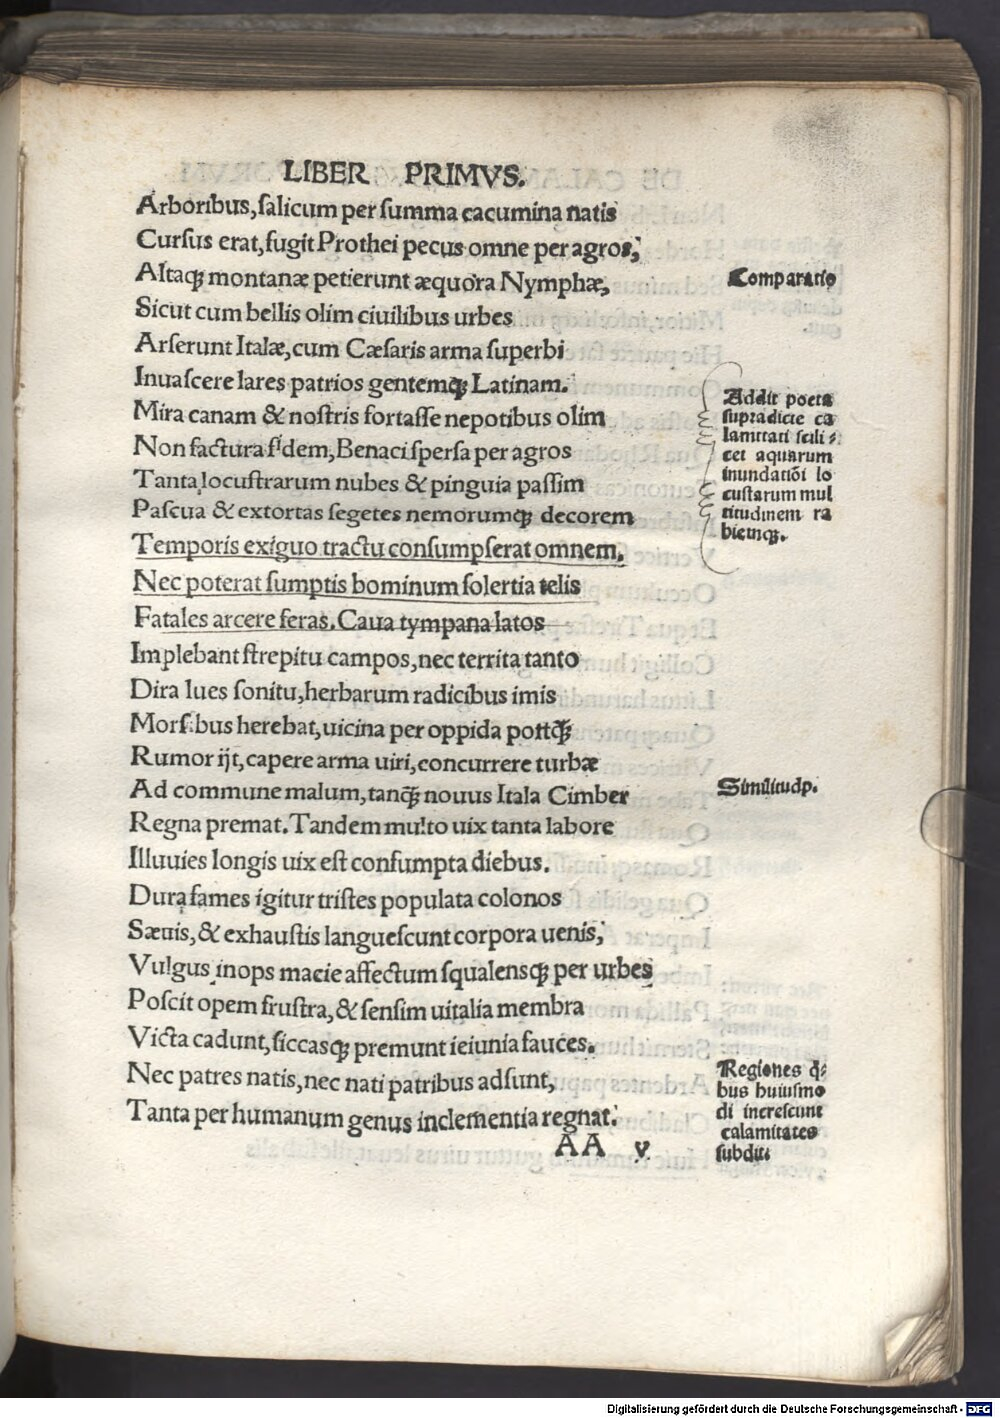 LIBER PRIMVS.
Arboribus, ſalicum per ſumma cacumina natis
Curſus erat, fugit Prothei pecus omne per agros,
Altaqꝫ montanæ petierunt æquora Nymphæ,
Comparatio
Sicut cum bellis olim ciuilibus urbes
Arſerunt Italæ, cum Cæſaris arma ſuperbi
Inuaſcere lares patrios gentemqꝫ Latinam.
Mira canam & noſtris fortaſſe nepotibus olim
Non factura fidem, Benaci ſperſa per agros
Tanta locuſtrarum nubes & pinguia paſſim
Paſcua & extortas ſegetes nemorumqꝫ decorem
Addit poeta
ſupradicte ca
lamitati ſcili⸗
cet aquarum
inundatiōi lo
cuſtarum mul
titudinem ra
biemqꝫ.
Temporis exiguo tractu conſumpſerat omnem.
Nec poterat ſumptis hominum ſolertia telis
Fatales arcere feras. Caua tympana latos
Implebant ſtrepitu campos, nec territa tanto
Dira lues ſonitu, herbarum radicibus imis
Morſibus herebat, uicina per oppida poſtqꝫ
Rumor ijt, capere arma uiri, concurrere turbæ
Ad commune malum, tanqꝫ nouus Itala Cimber
Similitudo.
Regna premat. Tandem multo uix tanta labore
Illuuies longis uix eſt conſumpta diebus.
Dura fames igitur triſtes populata colonos
Sæuis, & exhauſtis langueſcunt corpora uenis,
Vulgus inops macie affectum ſqualensqꝫ per urbes
Poſcit opem fruſtra, & ſenſim uitalia membra
Victa cadunt, ſiccasqꝫ premunt ieiunia fauces.
Nec patres natis, nec nati patribus adſunt,
Tanta per humanum genus inclementia regnat.
Regiones q̇⸗
bus huiuſmo
di increſcunt
calamitates
ſubdit
AA v
Digitalisierung gefördert durch die Deutsche Forschungsgemeinschaft - DFG